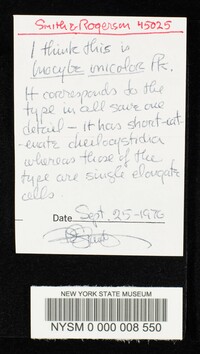 Smith & Rogerson 45025
I think this is
Inocybe unicolor Pk.
It corresponds to the
type in all save one
detail – it has short-cat-
enate cheilocystidia
whereas those of the
type are single elongate
cells.
Date Sept. 25-1976
NEW YORK STATE MUSEUM
NYSM 0 000 008 550